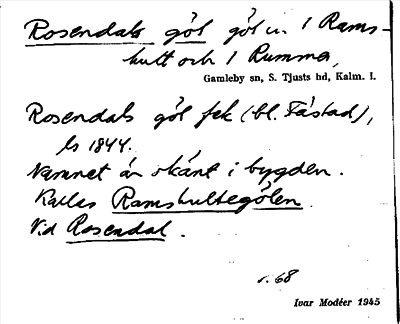 Rosendals göl göl in. 1 Rams-
hult och 1 Rumma,
Gamleby sn, S. Tjusts hd, Kalm. l.
Rosendals göl fek (bl. Fåstad),
ls 1844.
Namnet är okänt i bygden.
Kallas Ramshultegölen.
Vid Rosendal.
s. 68
Ivar Modéer 1945